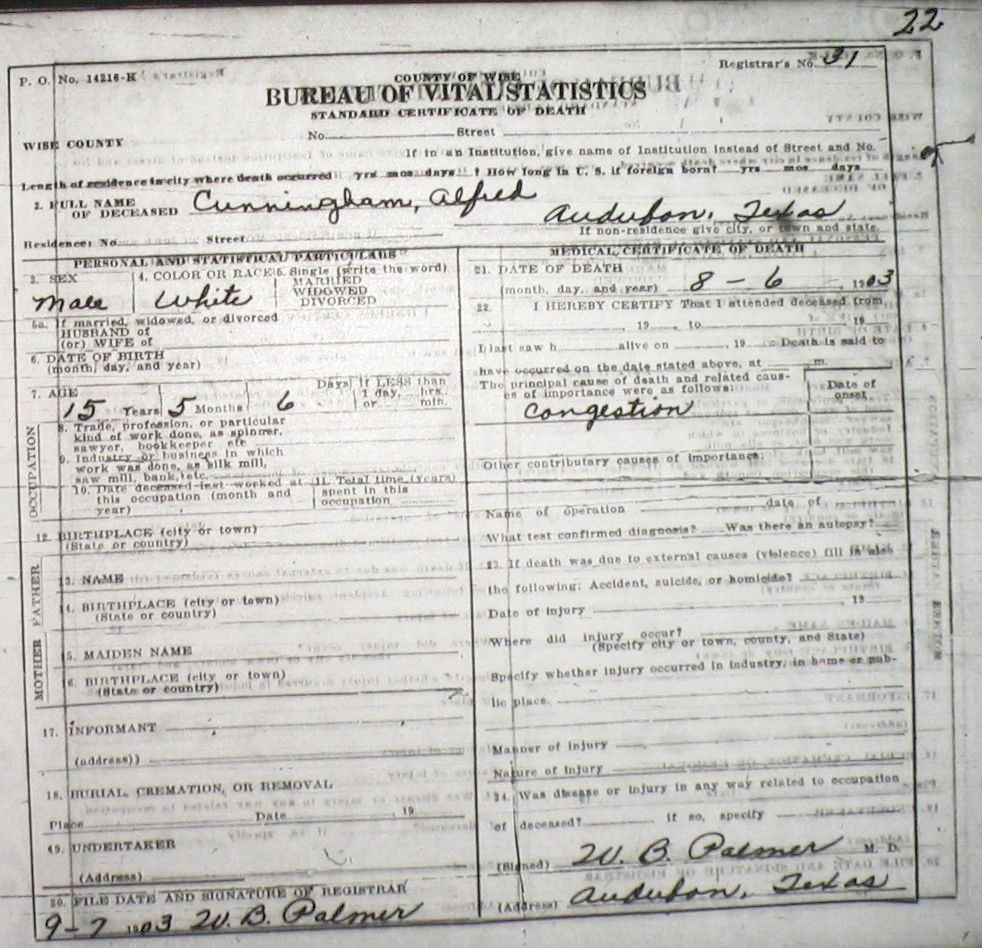 22
P. O. No. 14216-K
Registrar's No. 31
COUNTY OF WISE
BUREAU OF VITAL STATISTICS
STANDARD CERTIFICATE OF DEATH
WISE COUNTY
No. Street
If in an Institution, give name of Institution instead of Street and No.
Length of residence in city where death occurred yrs mos days ! How long in U. S. if foreign born? yrs mos days
2. FULL NAME OF DECEASED Cunningham, Alfred
Audubon, Texas
If non-residence give city, or town and state
Residence: No. Street
PERSONAL AND STATISTICAL PARTICULARS
3. SEX Male
4. COLOR OR RACE White
5. Single (write the word)
MARRIED
WIDOWED
DIVORCED
5a. If married, widowed, or divorced
HUSBAND of
(or) WIFE of
6. DATE OF BIRTH
(month, day, and year)
7. AGE 15 Years 5 Months 6 Days
If LESS than
1 day, hrs.
or min.
OCCUPATION
8. Trade, profession, or particular
kind of work done, as spinner,
sawyer, bookkeeper etc
9. Industry or business in which
work was done, as silk mill,
saw mill, bank, etc.
10. Date deceased last worked at
this occupation (month and
year)
11. Total time (years)
spent in this
occupation
12. BIRTHPLACE (city or town)
(State or country)
FATHER
13. NAME
14. BIRTHPLACE (city or town)
(State or country)
MOTHER
15. MAIDEN NAME
16. BIRTHPLACE (city or town)
(State or country)
17. INFORMANT
(address))
18. BURIAL, CREMATION, OR REMOVAL
Place Date , 19
19. UNDERTAKER
(Address)
20. FILE DATE AND SIGNATURE OF REGISTRAR
9-7 1903 W. B. Palmer
MEDICAL CERTIFICATE OF DEATH
21. DATE OF DEATH
(month, day, and year) 8-6, 1903
22. I HEREBY CERTIFY That I attended deceased from
, 19 , to , 19
I last saw h alive on , 19 Death is said to
have occurred on the date stated above, at m.
The principal cause of death and related caus-
es of importance were as follows:
Date of
onset
Congestion
Other contributary causes of importance:
Name of operation date of
What test confirmed diagnosis? Was there an autopsy?
23. If death was due to external causes (violence) fill in also
the following: Accident, suicide, or homicide?
Date of injury , 19
Where did injury occur?
(Specify city or town, county, and State)
Specify whether injury occurred in industry, in home or pub-
lic place.
Manner of injury
Nature of injury
24. Was disease or injury in any way related to occupation
of deceased? If so, specify
(Signed) W. B. Palmer M. D.
(Address) Audubon, Texas